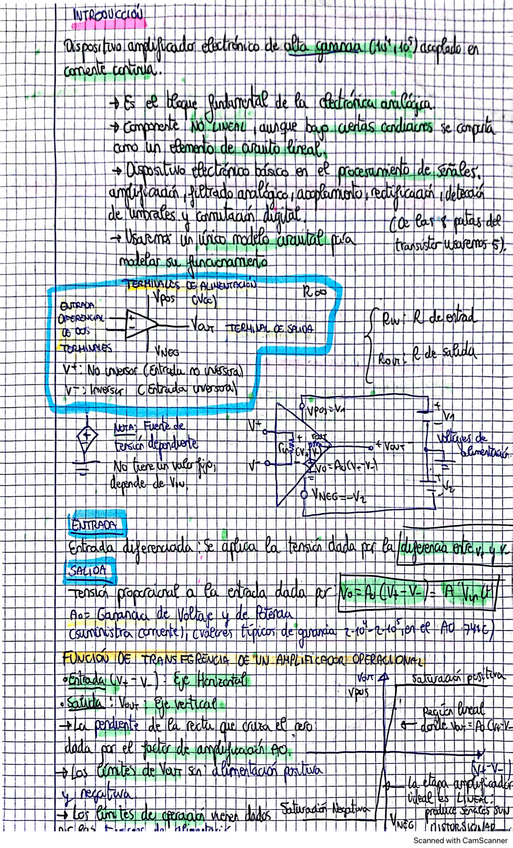 INTRODUCCIÓN
Dispositivo amplificador electrónico de alta ganancia (10⁴, 10⁵) acoplado en
corriente continua.
→ Es el bloque fundamental de la electrónica analógica.
→ Componente NO LINEAL, aunque bajo ciertas condiciones se comporta
como un elemento de circuito lineal.
→ Dispositivo electrónico básico en el procesamiento de señales,
amplificación, filtrado analógico, acoplamiento, rectificación, detección
de umbrales y conmutación digital.
(De las 8 patas del
transistor usaremos 5).
→ Usaremos un único modelo circuital para
modelar su funcionamiento
TERMINALES DE ALIMENTACIÓN
VPOS (VCC)
R∞
ENTRADA
DIFERENCIAL
DE DOS
TERMINALES
VOUT TERMINAL DE SALIDA
VNEG
V+: No inversor (Entrada no inversora)
V-: Inversor (Entrada inversora)
RIN: R de entrad
ROUT: R de salida
NOTA: Fuente de
tensión dependiente
No tiene un valor fijo,
depende de VIN.
V+
V-
VPOS = V1
Vo = Ao(V+-V-)
VNEG = -V2
+ VOUT -
V1
voltajes de
alimentación
V2
ENTRADA
Entrada diferenciada: Se aplica la tensión dada por la diferencia entre V+ y V-
SALIDA
Tensión proporcional a la entrada dada por Vo = Ao(V+-V-) = A Vin(t)
Ao = Ganancia de Voltaje y de Potencia
(suministra corriente), (valores típicos de ganancia 2·10⁴-2·10⁵, en el AO-741C)
FUNCIÓN DE TRANSFERENCIA DE UN AMPLIFICADOR OPERACIONAL
• Entrada (V+ - V-): Eje Horizontal
• Salida: VOUT Eje vertical
→ La pendiente de la recta que cruza el cero
dada por el factor de amplificación AO.
→ Los límites de VOUT son alimentación positiva
y negativa
→ Los límites de operación vienen dados
VOUT
VPOS
Saturación positiva
Región lineal
← donde VOUT = Ao(V+-V-
(V+-V-)
Saturación Negativa
VNEG
→ La etapa amplificador
ideal es LINEAL:
produce señales SIN
DISTORSIONAR
Scanned with CamScanner